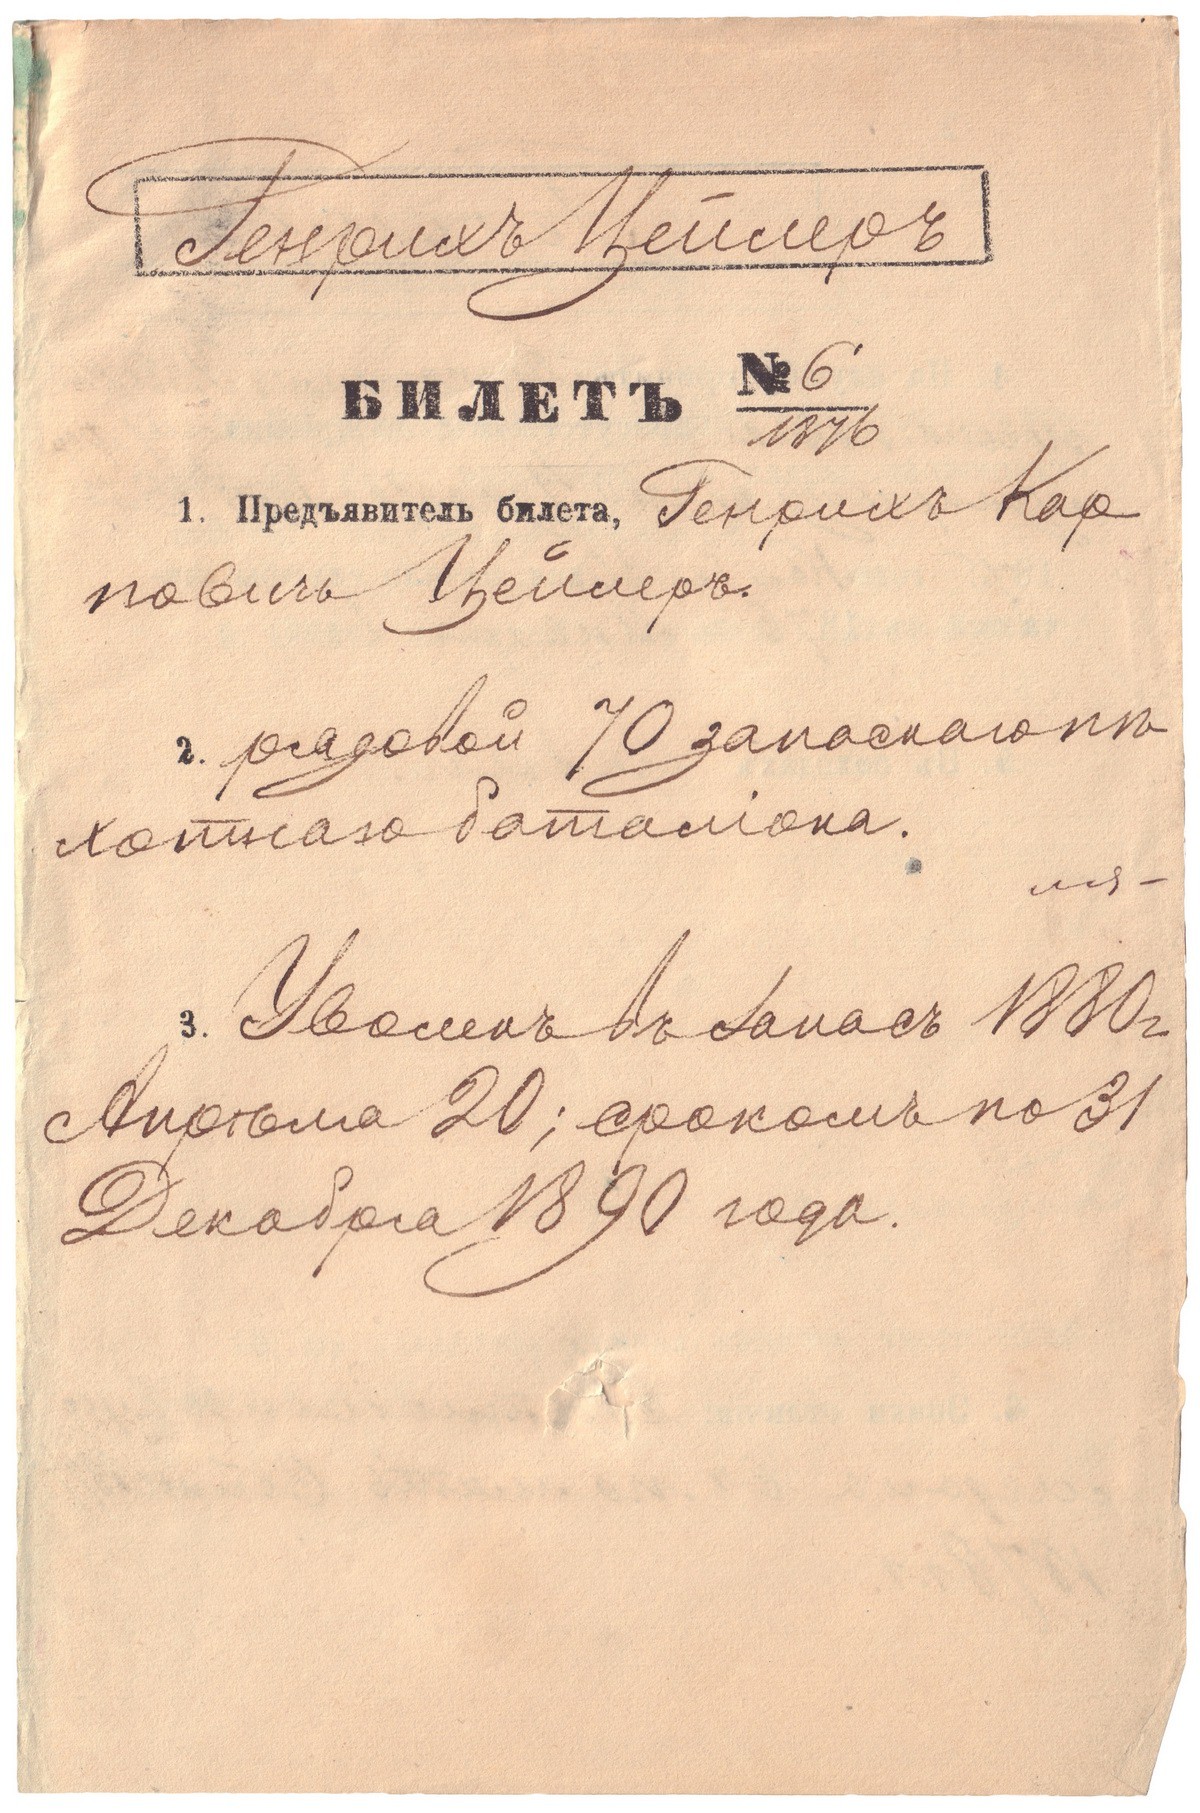 Генрихъ Цейлеръ
БИЛЕТЪ № 6
1876
1. Предъявитель билета, Генрихъ Кар
повичъ Цейлеръ.
2. рядовой 70 запаснаго пѣ
хотнаго баталіона.
3. Уволенъ въ запасъ 1880 г
Апрѣля 20; срокомъ по 31
Декабря 1890 года.